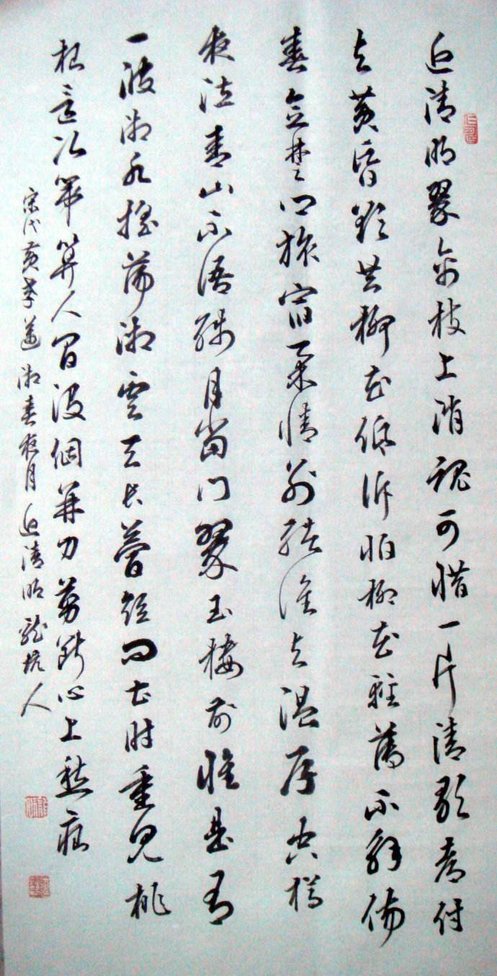 近清明翠禽枝上消魂可惜一片清歌都付
与黄昏欲共柳花低诉怕柳花轻薄不解伤
春念楚乡旅宿柔情别绪谁与温存空樽
夜泣青山不语残月当门翠玉楼前惟是有
一波湘水摇荡湘云天长梦短问甚时重见桃
根这次第算人间没個并刀剪断心上愁痕
宋代黄孝迈湘春夜月近清明 人